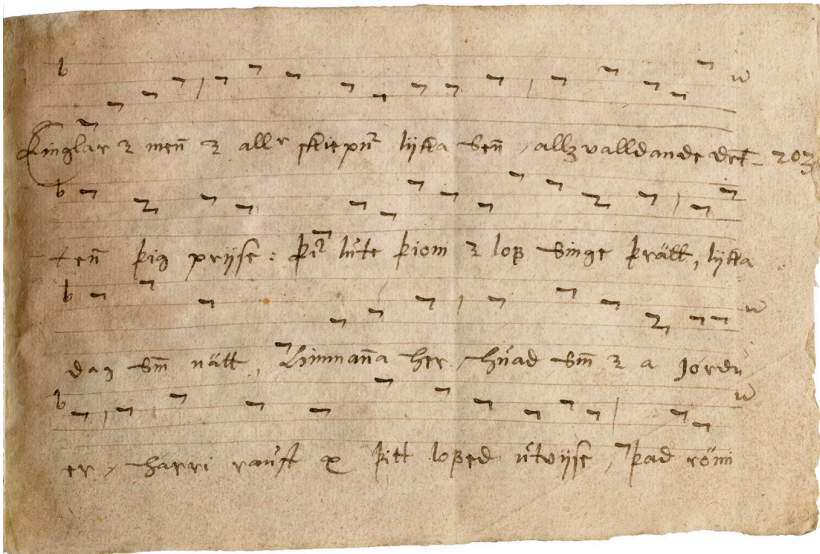 Einglar ꝛ men̄ ꝛ allr skiepnr lijka Sen̄, allzvalldande drot- 203
ten̄ þig prijse: þr̄ lúte þioni ꝛ lof Singe þrätt, lijka
dag Sm̄ nätt, Himnan̄a her, húad Sm̄ ꝛ a Jördu
er, hárri raúst þitt lofed útvijse, þad römi